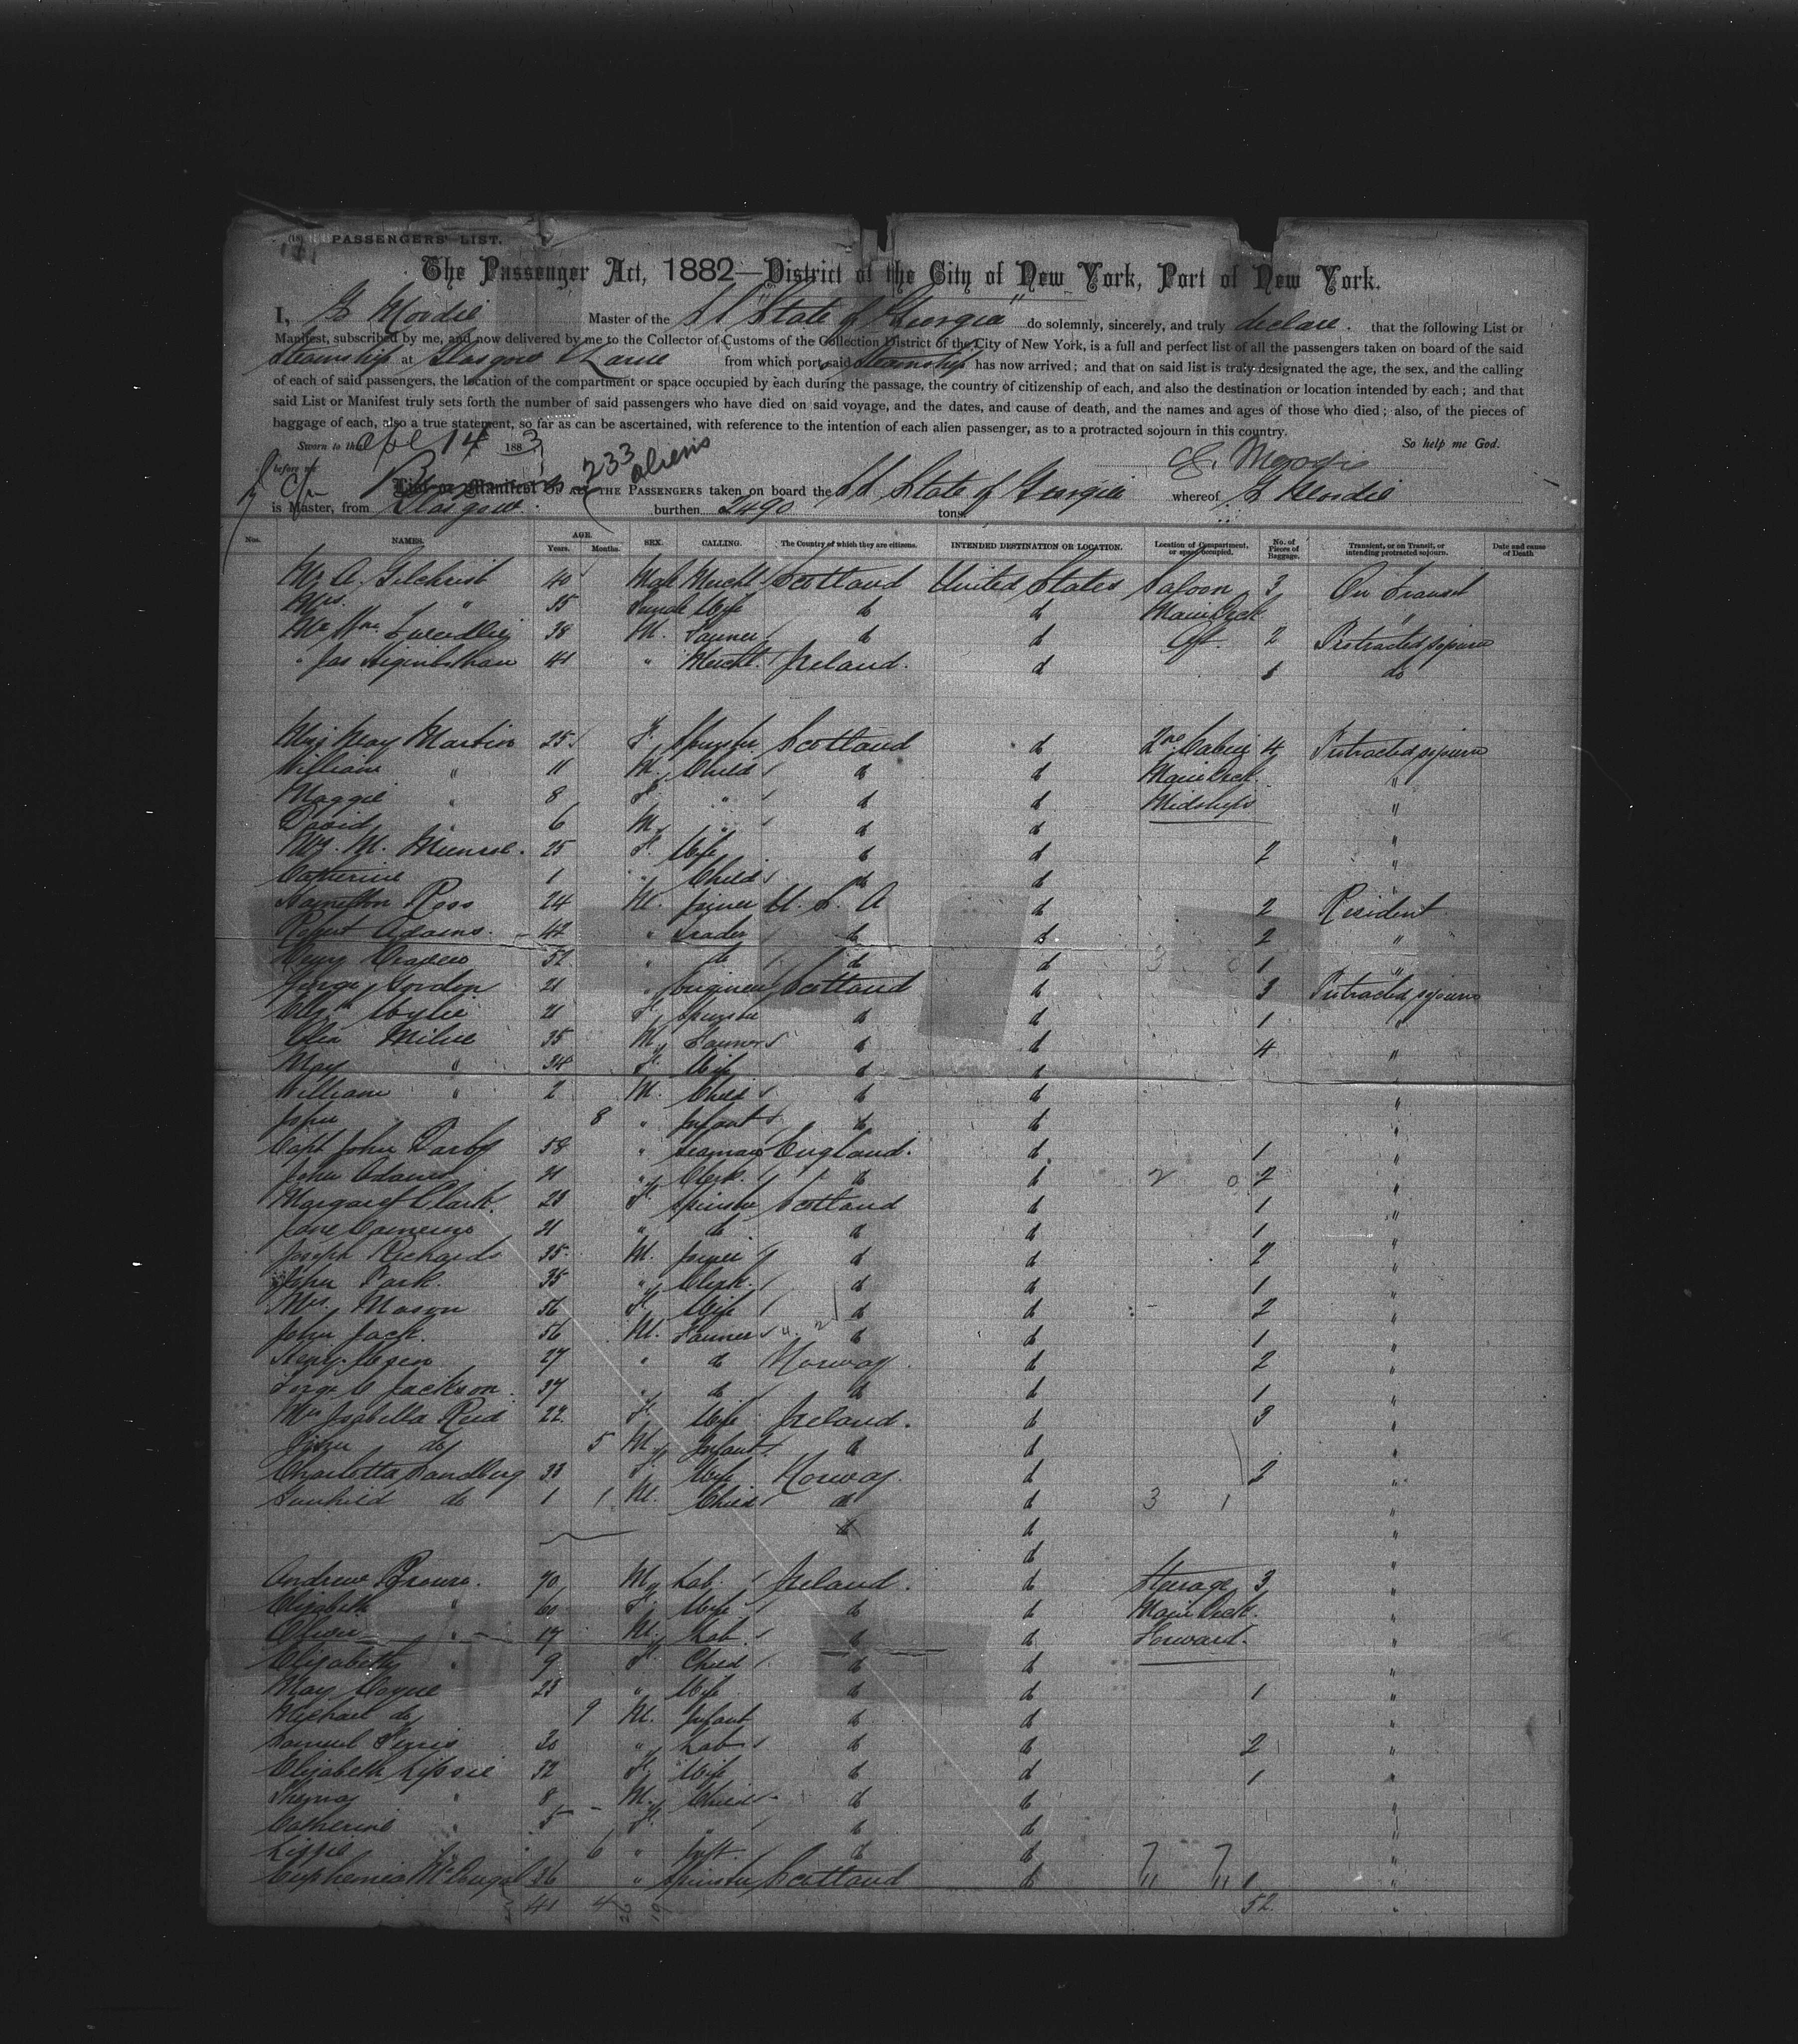 PASSENGERS' LIST.
The Passenger Act, 1882—District of the City of New York, Port of New York.
I, G Mordie Master of the SS "State of Georgia" do solemnly, sincerely, and truly declare. that the following List or
Manifest, subscribed by me, and now delivered by me to the Collector of Customs of the Collection District of the City of New York, is a full and perfect list of all the passengers taken on board of the said
Steamship at Glasgow & Larne from which port said Steamship has now arrived; and that on said list is truly designated the age, the sex, and the calling
of each of said passengers, the location of the compartment or space occupied by each during the passage, the country of citizenship of each, and also the destination or location intended by each; and that
said List or Manifest truly sets forth the number of said passengers who have died on said voyage, and the dates, and cause of death, and the names and ages of those who died; also, of the pieces of
baggage of each, also a true statement, so far as can be ascertained, with reference to the intention of each alien passenger, as to a protracted sojourn in this country.
Sworn to this Apl 14 1883 So help me God.
233 aliens
before me G. Mordie
List or Manifest OF ALL THE PASSENGERS taken on board the SS State of Georgia whereof G Mordie
is Master, from Glasgow burthen 2490 tons.
Nos. NAMES. AGE. Years. Months. SEX. CALLING. The Country of which they are citizens. INTENDED DESTINATION OR LOCATION. Location of Compartment, or space occupied. No. of Pieces of Baggage. Transient, or on Transit, or intending protracted sojourn. Date and cause of Death
Mr A. Gilchrist 40 Male Mercht Scotland United States Saloon 3 On Transit
Mrs. " 35 Female Wife do do Main Deck "
Mr Wm 38 M. Farmer do do Aft. 2 Protracted sojourn
" Jas Higinbothan 41 " Mercht. Ireland. do 1 do
Miss May Martin 25 F. Spinster Scotland do 2nd Cabin 4 Protracted sojourn
William " 11 M. Child do do Main Deck "
Maggie " 8 F. " do do Midships "
David " 6 M. " do do "
Mrs. M. Munroe. 25 F. Wife do do 2 "
Catherine 1 " Child do do "
Hamilton Ross 24 M. Joiner U. S. A do 2 Resident
Robert Adams. 42 " Trader do do 2 "
52 " do do do 1 "
George Gordon 21 " Engineer Scotland do 3 Protracted sojourn
Elizth Wylie 21 F. Spinster do do 1 "
Milne 35 M. Farmer do do 4 "
May " 34 F. Wife do do "
William " 2 M. Child do do "
John 8 " Infant do do "
Capt John Darby 58 " Seaman England. do 1 "
John Adams 21 " Clerk. do do 2 "
Margaret Clark. 28 F. Spinster Scotland do 1 "
Jane Cameron 21 " do do do 1 "
Joseph Richards 35 M. Joiner do do 2 "
John Park. 35 " Clerk. do do 1 "
Mrs. Mason 56 F. Wife do do 2 "
John Jack. 56 M. Farmer do do 1 "
27 " do Norway. do 2 "
Jackson. 37 " do do do 1 "
Mrs Isabella Reid 22 F. Wife Ireland. do 3 "
do 5 M. Infant do do "
Charlotta Sandberg 33 F. Wife Norway. do 2 "
Gunhild do 1 1 M. Child do do "
do do "
do "
Andrew Brown. 70 M. Lab. Ireland. do Steerage 3 "
Elizabeth " 60 F. Wife do do Main Deck. "
Oliver " 17 M. Lab. do do Forward. "
Elizabeth " 9 F. Child do do "
May 23 " Wife do do 1 "
Michael do 9 M. Infant do do "
Samuel 30 " Lab do do 2 "
Elizabeth 32 F. Wife do do 1 "
Thomas " 8 M. Child do do "
Catherine " 5 F. " do do "
Lizzie " 6 " Inft. do do "
Euphemia McDougal 26 " Spinster Scotland do 1 "
41 4 52